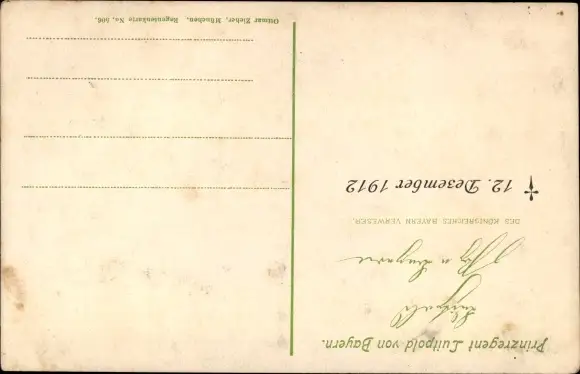 Prinzregent Luitpold von Bayern.
Luitpold
DES KÖNIGREICHES BAYERN VERWESER.
✝ 12. Dezember 1912
Ottmar Zieher, München. Regentenkarte No. 506.